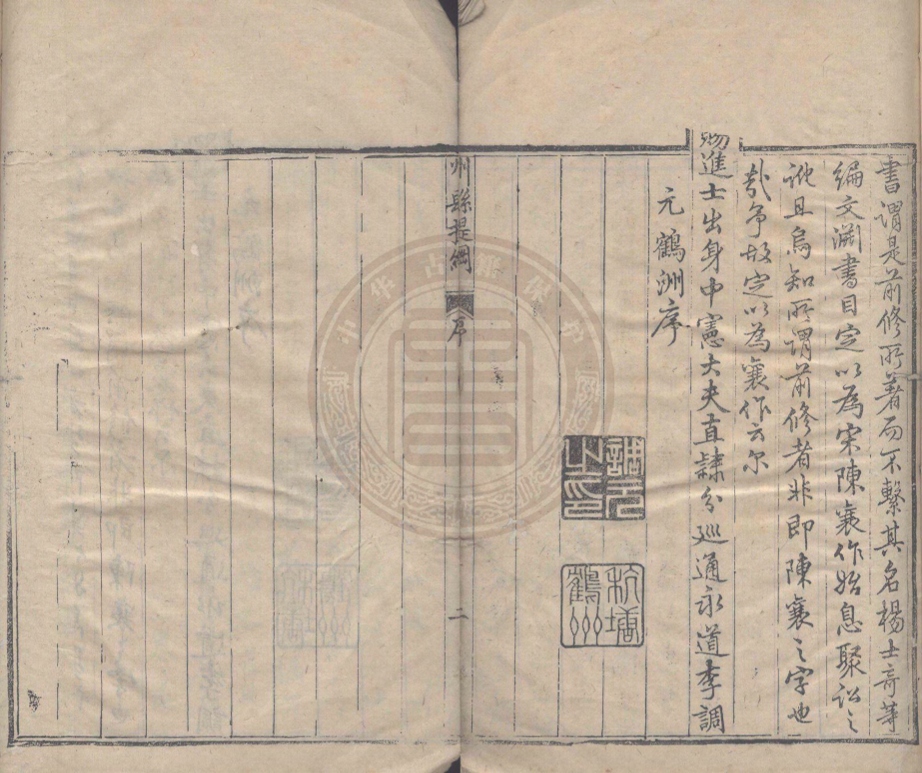 書謂是前修所著而不繫其名楊士奇等
編文淵書目定以為宋陳襄作始息聚訟之
訛且烏知所謂前修者非即陳襄之字也
哉爭故定以為襄作云尔
賜進士出身中憲大夫直隸分巡通永道李調
元鶴洲序
調元之印
鶴州
州縣提綱 序 二
中华古籍保护